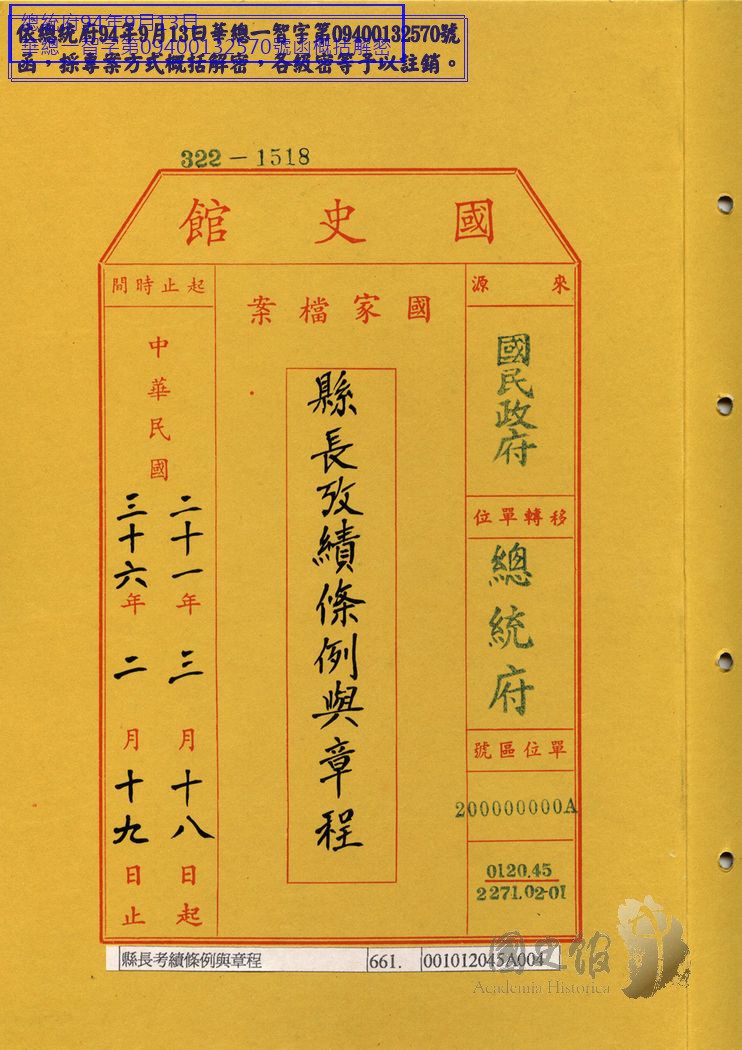 總統府94年9月13日
華總一智字第09400132570號函概括解密
依總統府94年9月13日華總一智字第09400132570號
函，採專案方式概括解密，各級密等予以註銷。
322－1518
國史館
來源
國民政府
移轉單位
總統府
單位區號
200000000A
0120.45
2271.02-01
國家檔案
縣長攷績條例與章程
起止時間
中華民國
二十一年三月十八日起
三十六年二月十九日止
縣長考績條例與章程
661.
001012045A004
國史館
Academia Historica